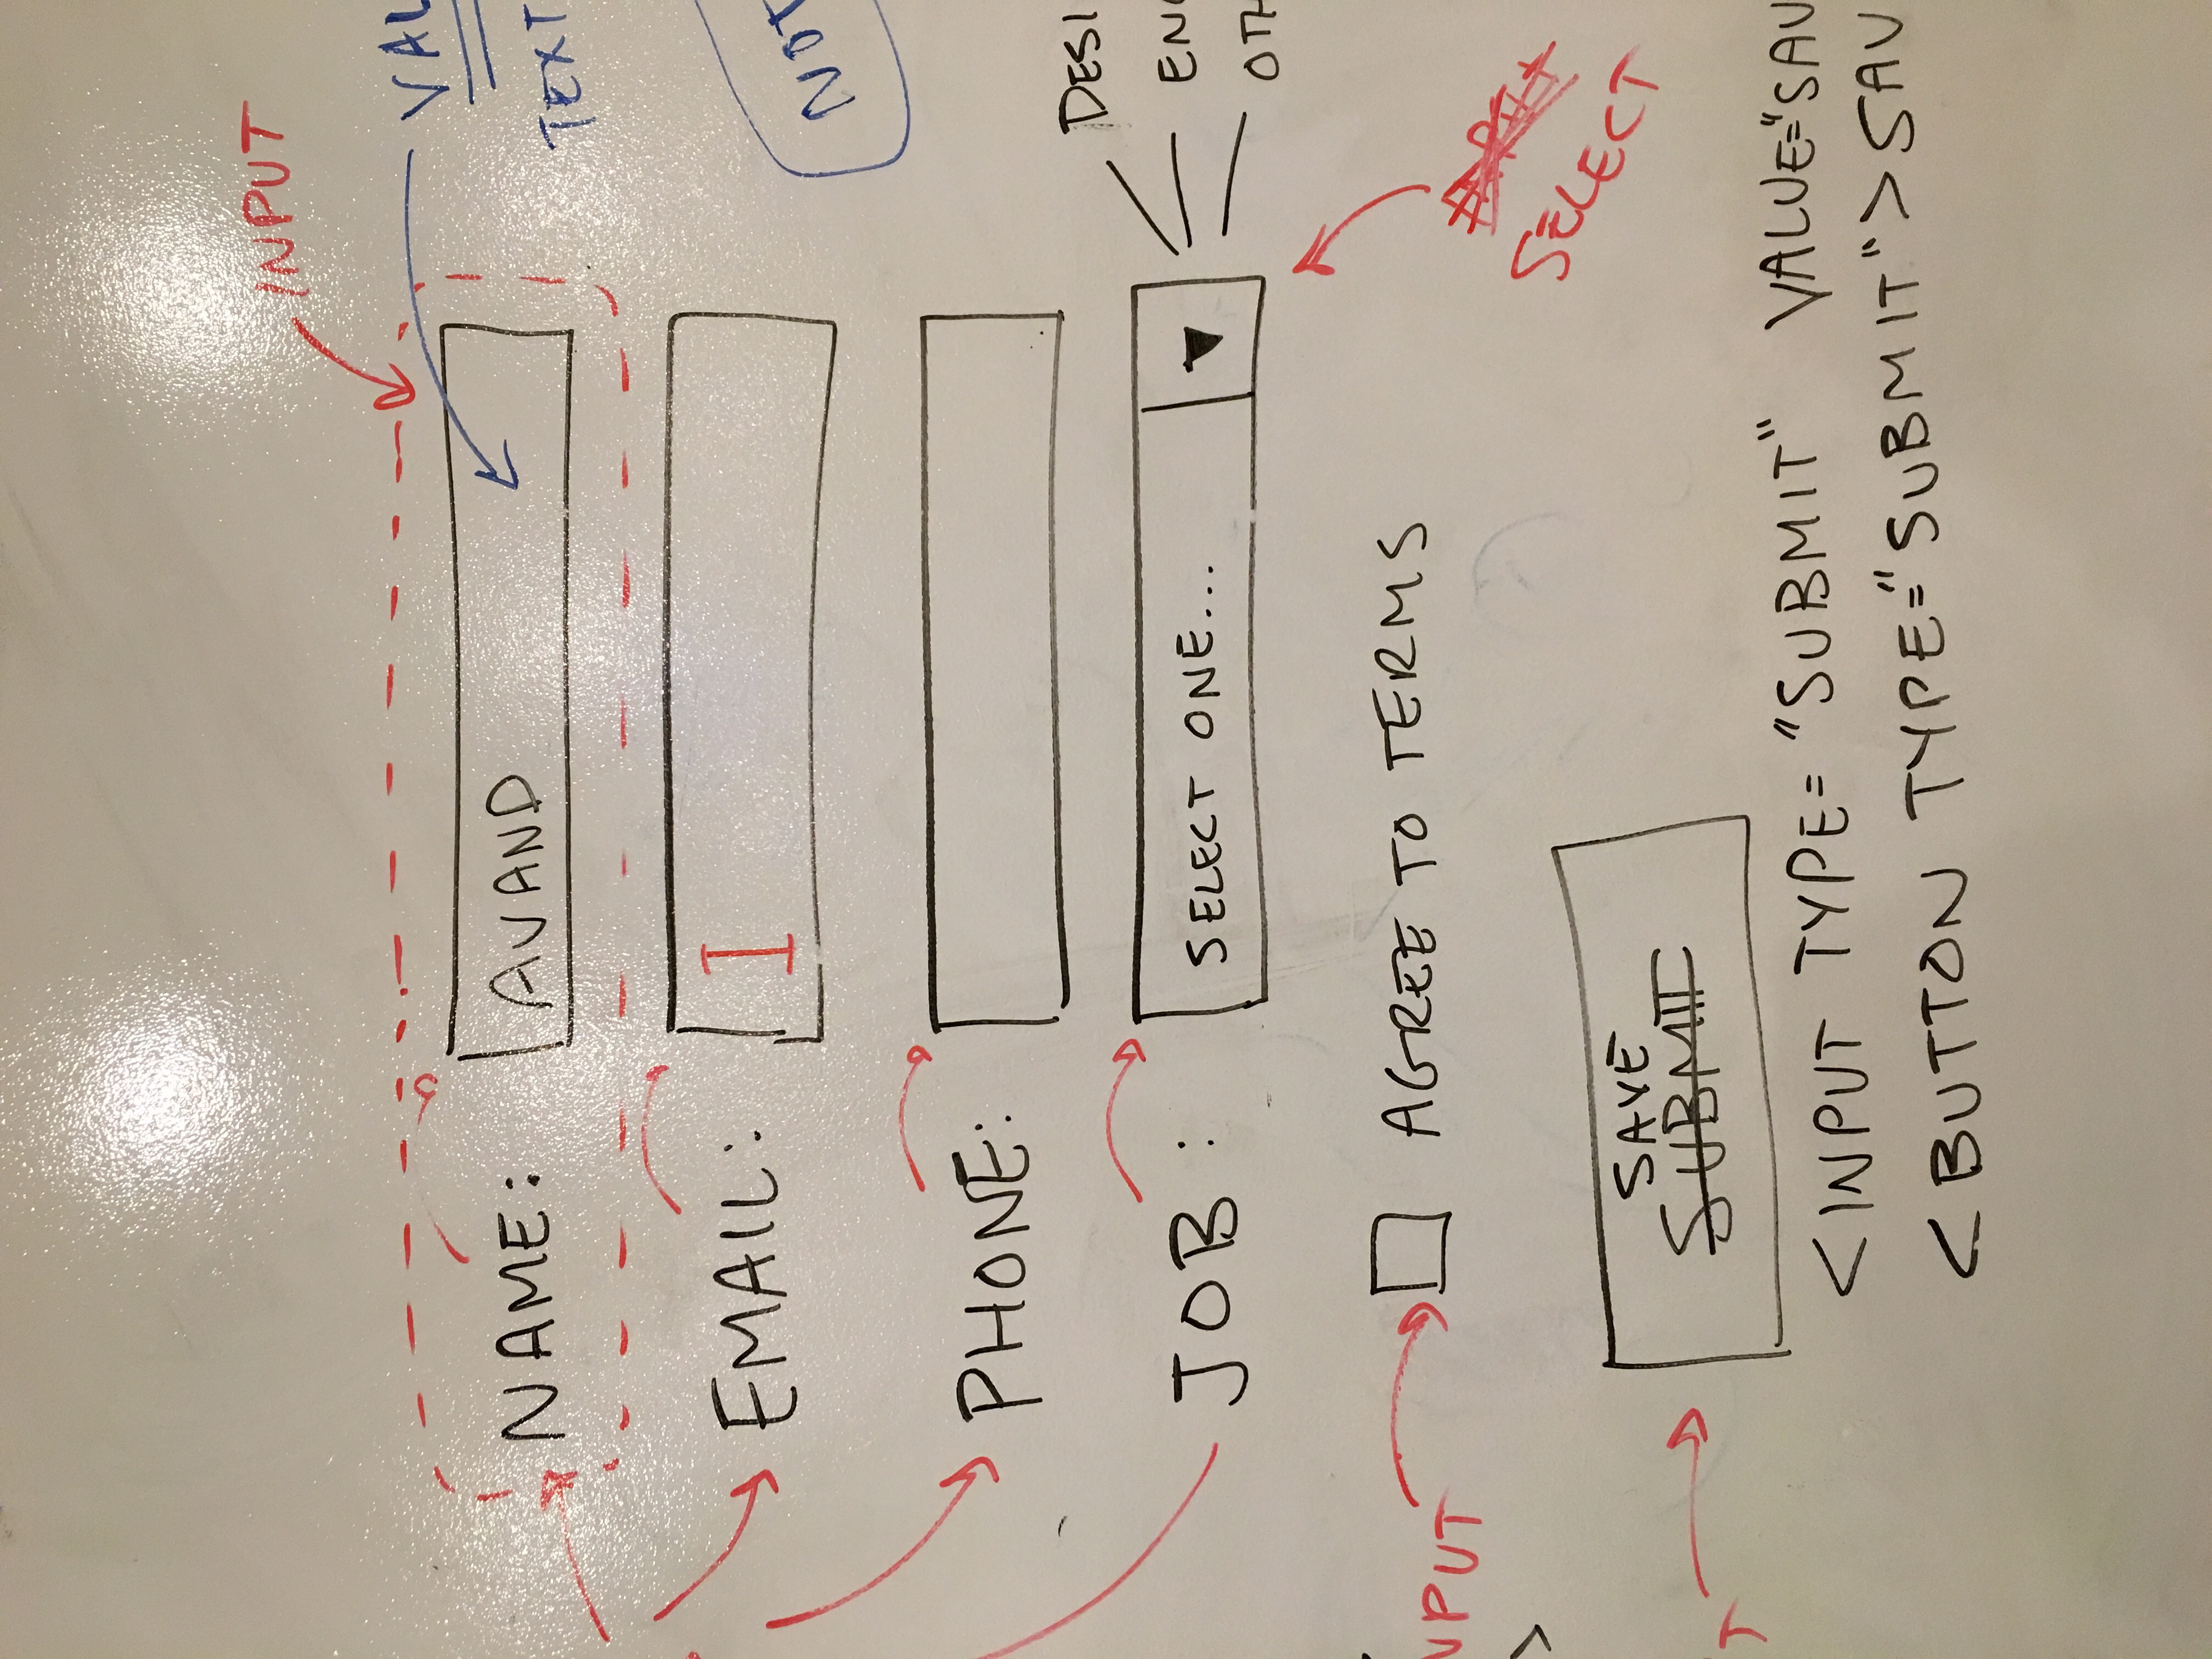 INPUT
VAL
NAME: AVAND
TEXT
EMAIL: I
NOT
PHONE:
DESI
JOB : SELECT ONE... ▼
ENG
OTH
NPUT
AGREE TO TERMS
SELECT
>
SAVE
SUBMIT
T
<INPUT TYPE="SUBMIT" VALUE="SAV
<BUTTON TYPE="SUBMIT">SAV